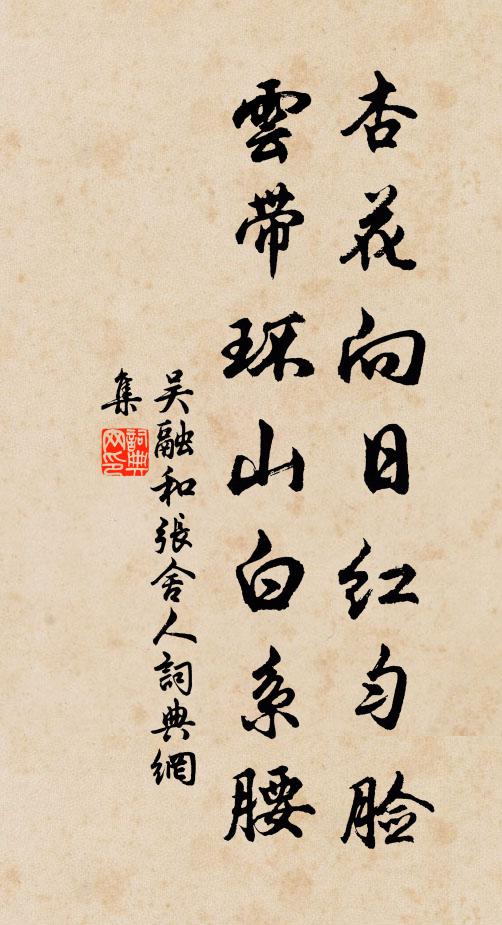 杏花向日红匀脸
雲带环山白系腰
吴融和張舍人詞典網
集
詞典
网印